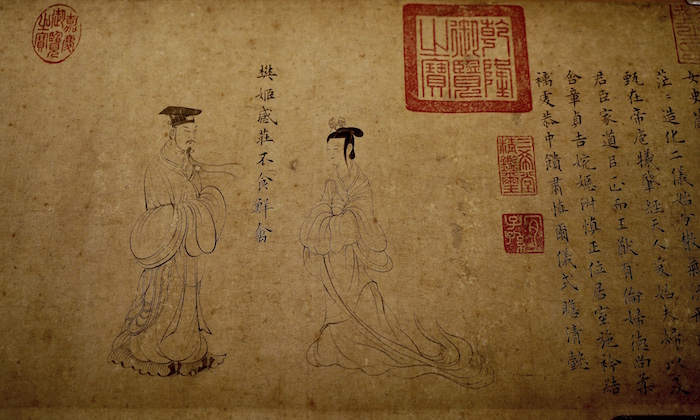 女史箴
茫茫造化二儀始分散氣流形既陶既
甄在帝庖犧肇經天人爰始夫婦以及
君臣家道以正而王猷有倫婦德尚柔
含章貞吉婉嫕淑慎正位居室施衿結
褵虔恭中饋肅慎爾儀式瞻清懿
乾隆御覽之寶
三希堂精鑑璽
宜子孫
樊姬感莊不食鮮禽
嘉慶御覽之寶